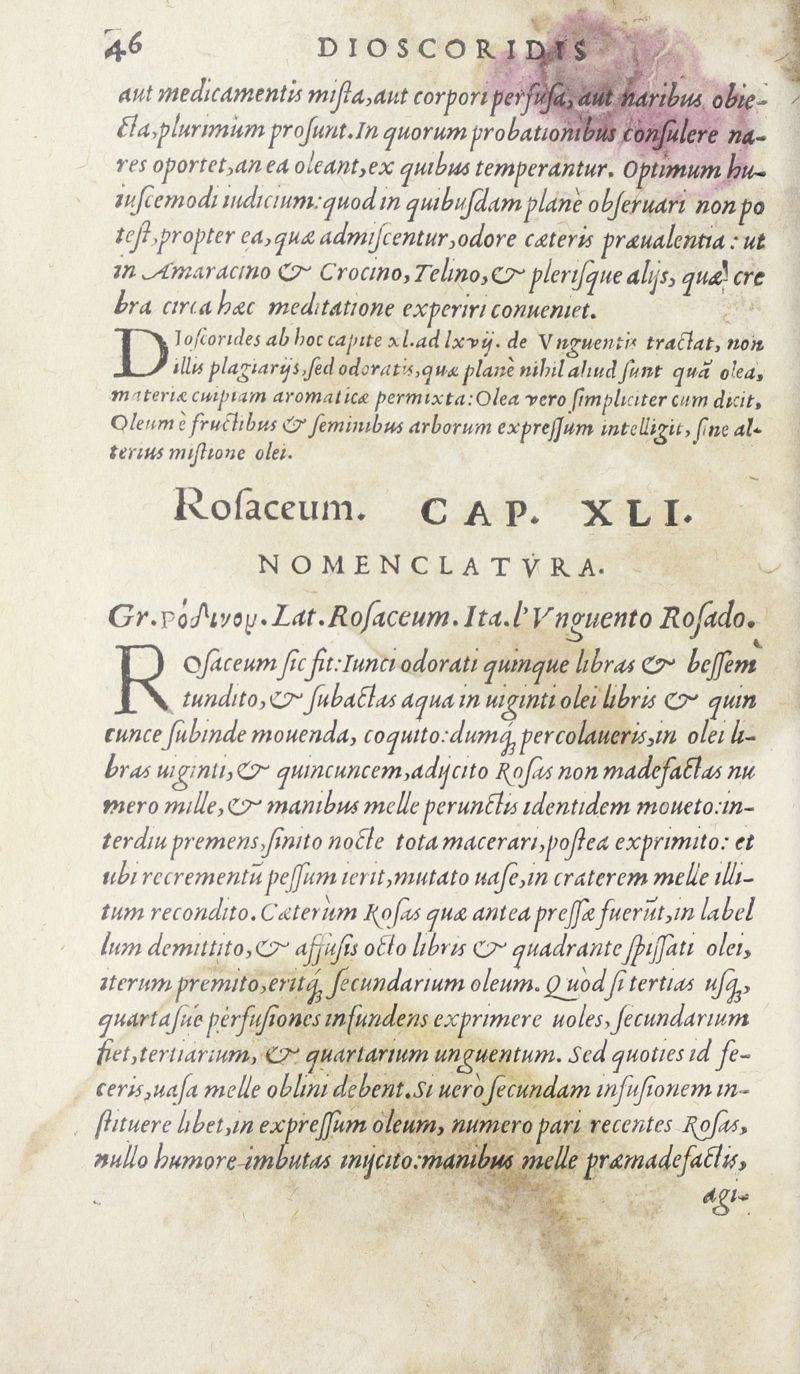 46 DIOSCORIDIS
aut medicamentis miſta, aut corpori perfuſa, aut naribus obie-
cta, plurimùm proſunt. In quorum probationibus conſulere na-
res oportet, an ea oleant, ex quibus temperantur. Optimum hu-
iuſcemodi iudicium: quod in quibuſdam planè obſeruari non po
teſt, propter ea, quæ admiſcentur, odore cæteris præualentia: ut
in Amaracino & Crocino, Telino, & pleriſque alijs, quæ cre
bra circa hæc meditatione experiri conueniet.
DIoſcorides ab hoc capite xl. ad lxvij. de Vnguentis tractat, non
illis plagiarijs, ſed odoratis, quæ planè nihil aliud ſunt quã olea,
materiæ cuipiam aromaticæ permixta: Olea vero ſimpliciter cum dicit,
Oleum è fructibus & ſeminibus arborum expreſſum intelligit, ſine al-
terius miſtione olei.
Roſaceum. CAP. XLI.
NOMENCLATVRA.
Gr. ῥόδινον. Lat. Roſaceum. Ita. l'Vnguento Roſado.
ROſaceum ſic fit: Iunci odorati quinque libras & beſſem
tundito, & ſubactas aqua in uiginti olei libris & quin
cunce ſubinde mouenda, coquito: dumq́ꝫ percolaueris, in olei li-
bras uiginti, & quincuncem, adijcito Roſas non madefactas nu
mero mille, & manibus melle perunctis identidem moueto: in-
terdiu premens, ſinito nocte tota macerari, poſtea exprimito: et
ubi recrementũ peſſum ierit, mutato uaſe, in craterem melle illi-
tum recondito. Cæterùm Roſas quæ antea preſſæ fuerũt, in label
lum demittito, & affuſis octo libris & quadrante ſpiſſati olei,
iterum premito, eritq́ꝫ ſecundarium oleum. Quòd ſi tertias uſq́ꝫ,
quartaſùe perfuſiones infundens exprimere uoles, ſecundarium
fiet, tertiarium, & quartarium unguentum. Sed quoties id fe-
ceris, uaſa melle oblini debent. Si uerò ſecundam infuſionem in-
ſtituere libet, in expreſſum oleum, numero pari recentes Roſas,
nullo humore imbutas inijcito: manibus melle præmadefactis,
agi-